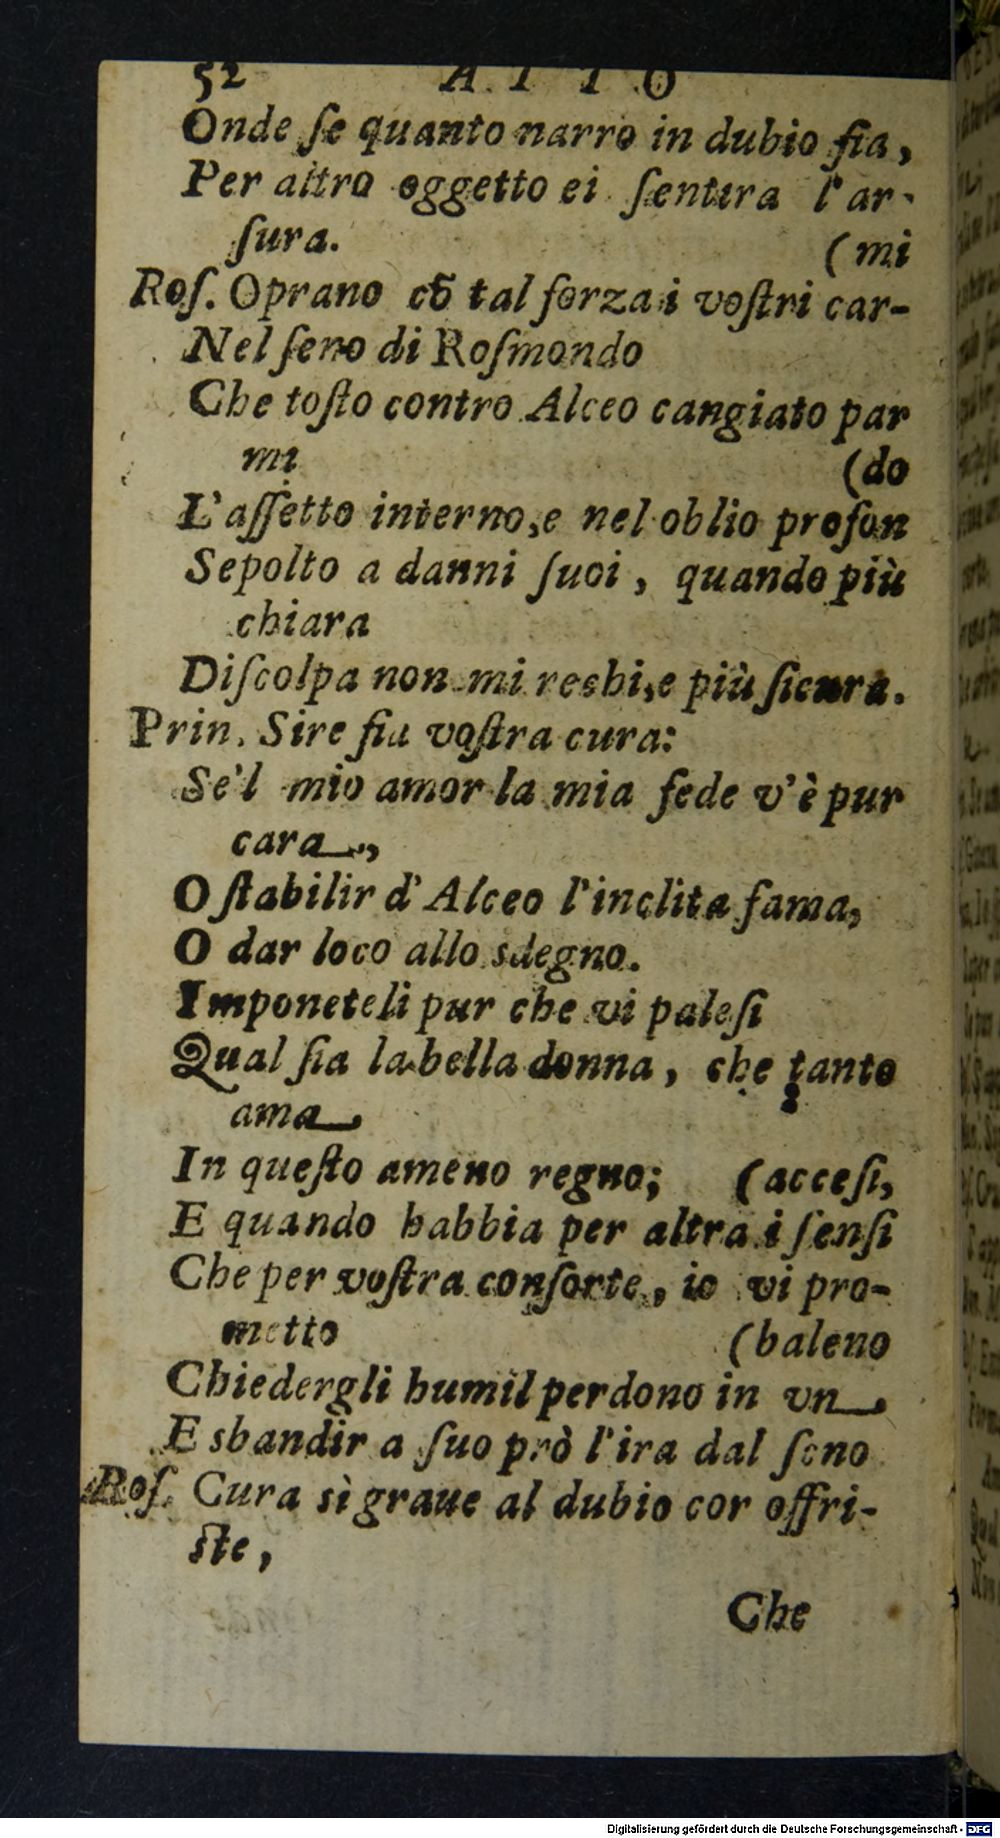 52 ATTO
Onde ſe quanto narro in dubio ſia,
Per altro oggetto ei ſentira l'ar-
ſura. (mi
Roſ. Oprano cõ tal forza i voſtri car-
Nel ſeno di Roſmondo
Che toſto contro Alceo cangiato par
mi (do
L'affetto interno, e nel oblio profon
Sepolto a danni ſuoi, quando più
chiara
Diſcolpa non mi rechi, e più ſicura.
Prin. Sire ſia voſtra cura:
Se'l mio amor la mia fede v'è pur
cara,
O ſtabilir d'Alceo l'inclita fama,
O dar loco allo sdegno.
Imponeteli pur che vi paleſi
Qual ſia la bella donna, che tanto
ama
In queſto ameno regno; (acceſi,
E quando habbia per altra i ſenſi
Che per voſtra conſorte, io vi pro-
metto (baleno
Chiedergli humil perdono in vn
E sbandir a ſuo prò l'ira dal ſeno
Roſ. Cura sì graue al dubio cor offri-
ſte,
Che
Digitalisierung gefördert durch die Deutsche Forschungsgemeinschaft - DFG